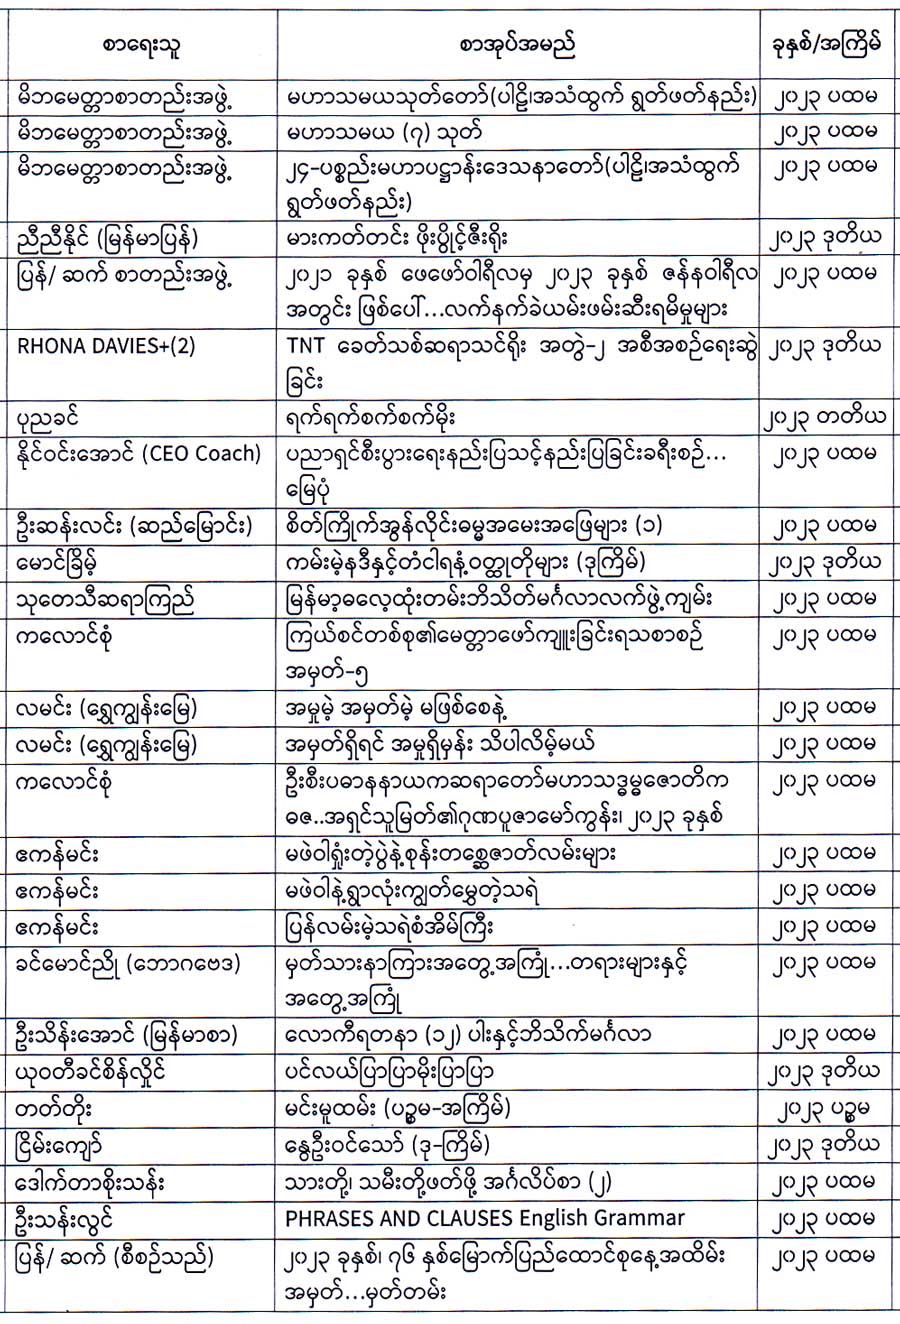 စာရေးသူ စာအုပ်အမည် ခုနှစ်/အကြိမ်
မိဘမေတ္တာစာတည်းအဖွဲ့ မဟာသမယသုတ်တော်(ပါဠိ၊အသံထွက် ရွတ်ဖတ်နည်း) ၂၀၂၃ ပထမ
မိဘမေတ္တာစာတည်းအဖွဲ့ မဟာသမယ (၇) သုတ် ၂၀၂၃ ပထမ
မိဘမေတ္တာစာတည်းအဖွဲ့ ၂၄-ပစ္စည်းမဟာပဋ္ဌာန်းဒေသနာတော်(ပါဠိ၊အသံထွက် ၂၀၂၃ ပထမ
ရွတ်ဖတ်နည်း)
ညီညီနိုင် (မြန်မာပြန်) မားကတ်တင်း ဖိုးပွိုင့်ဇီးရိုး ၂၀၂၃ ဒုတိယ
ပြန်/ ဆက် စာတည်းအဖွဲ့ ၂၀၂၁ ခုနှစ် ဖေဖော်ဝါရီလမှ ၂၀၂၃ ခုနှစ် ဇန်နဝါရီလ ၂၀၂၃ ပထမ
အတွင်း ဖြစ်ပေါ်...လက်နက်ခဲယမ်းဖမ်းဆီးရမိမှုများ
RHONA DAVIES+(2) TNT ခေတ်သစ်ဆရာသင်ရိုး အတွဲ-၂ အစီအစဉ်ရေးဆွဲ ၂၀၂၃ ဒုတိယ
ခြင်း
ပုညခင် ရက်ရက်စက်စက်မိုး ၂၀၂၃ တတိယ
နိုင်ဝင်းအောင် (CEO Coach) ပညာရှင်စီးပွားရေးနည်းပြသင့်နည်းပြခြင်းခရီးစဉ်... ၂၀၂၃ ပထမ
မြေပုံ
ဦးဆန်းလင်း (ဆည်မြောင်း) စိတ်ကြိုက်အွန်လိုင်းဓမ္မအမေးအဖြေများ (၁) ၂၀၂၃ ပထမ
မောင်ခြိမ့် ကမ်းမဲ့နဒီနှင့်တံငါရနံ့ဝတ္ထုတိုများ (ဒုကြိမ်) ၂၀၂၃ ဒုတိယ
သုတေသီဆရာကြည် မြန်မာ့ဓလေ့ထုံးတမ်းဘိသိတ်မင်္ဂလာလက်ဖွဲ့ကျမ်း ၂၀၂၃ ပထမ
ကလောင်စုံ ကြယ်စင်တစ်စု၏မေတ္တာဖော်ကျူးခြင်းရသစာစဉ် ၂၀၂၃ ပထမ
အမှတ်-၅
လမင်း (ရွှေကျွန်းမြေ) အမှုမဲ့ အမှတ်မဲ့ မဖြစ်စေနဲ့ ၂၀၂၃ ပထမ
လမင်း (ရွှေကျွန်းမြေ) အမှတ်ရှိရင် အမှုရှိမှန်း သိပါလိမ့်မယ် ၂၀၂၃ ပထမ
ကလောင်စုံ ဦးစီးပဓာနနာယကဆရာတော်မဟာသဒ္ဓမ္မဇောတိက ၂၀၂၃ ပထမ
ဓဇ..အရှင်သူမြတ်၏ဂုဏပူဇာမော်ကွန်း၊ ၂၀၂၃ ခုနှစ်
ဧကန်မင်း မဖဲဝါရှုံးတဲ့ပွဲနဲ့စုန်းတစ္ဆေဇာတ်လမ်းများ ၂၀၂၃ ပထမ
ဧကန်မင်း မဖဲဝါနဲ့ရွာလုံးကျွတ်မွှေတဲ့သရဲ ၂၀၂၃ ပထမ
ဧကန်မင်း ပြန်လမ်းမဲ့သရဲစံအိမ်ကြီး ၂၀၂၃ ပထမ
ခင်မောင်ညို (ဘောဂဗေဒ) မှတ်သားနာကြားအတွေ့အကြုံ...တရားများနှင့် ၂၀၂၃ ပထမ
အတွေ့အကြုံ
ဦးသိန်းအောင် (မြန်မာစာ) လောကီရတနာ (၁၂) ပါးနှင့်ဘိသိက်မင်္ဂလာ ၂၀၂၃ ပထမ
ယုဝတီခင်စိန်လှိုင် ပင်လယ်ပြာပြာမိုးပြာပြာ ၂၀၂၃ ဒုတိယ
တတ်တိုး မင်းမူထမ်း (ပဉ္စမ-အကြိမ်) ၂၀၂၃ ပဉ္စမ
ငြိမ်းကျော် နွေဦးဝင်သော် (ဒု-ကြိမ်) ၂၀၂၃ ဒုတိယ
ဒေါက်တာစိုးသန်း သားတို့၊ သမီးတို့ဖတ်ဖို့ အင်္ဂလိပ်စာ (၂) ၂၀၂၃ ပထမ
ဦးသန်းလွင် PHRASES AND CLAUSES English Grammar ၂၀၂၃ ပထမ
ပြန်/ ဆက် (စီစဉ်သည်) ၂၀၂၃ ခုနှစ်၊ ၇၆ နှစ်မြောက်ပြည်ထောင်စုနေ့အထိမ်း ၂၀၂၃ ပထမ
အမှတ်...မှတ်တမ်း